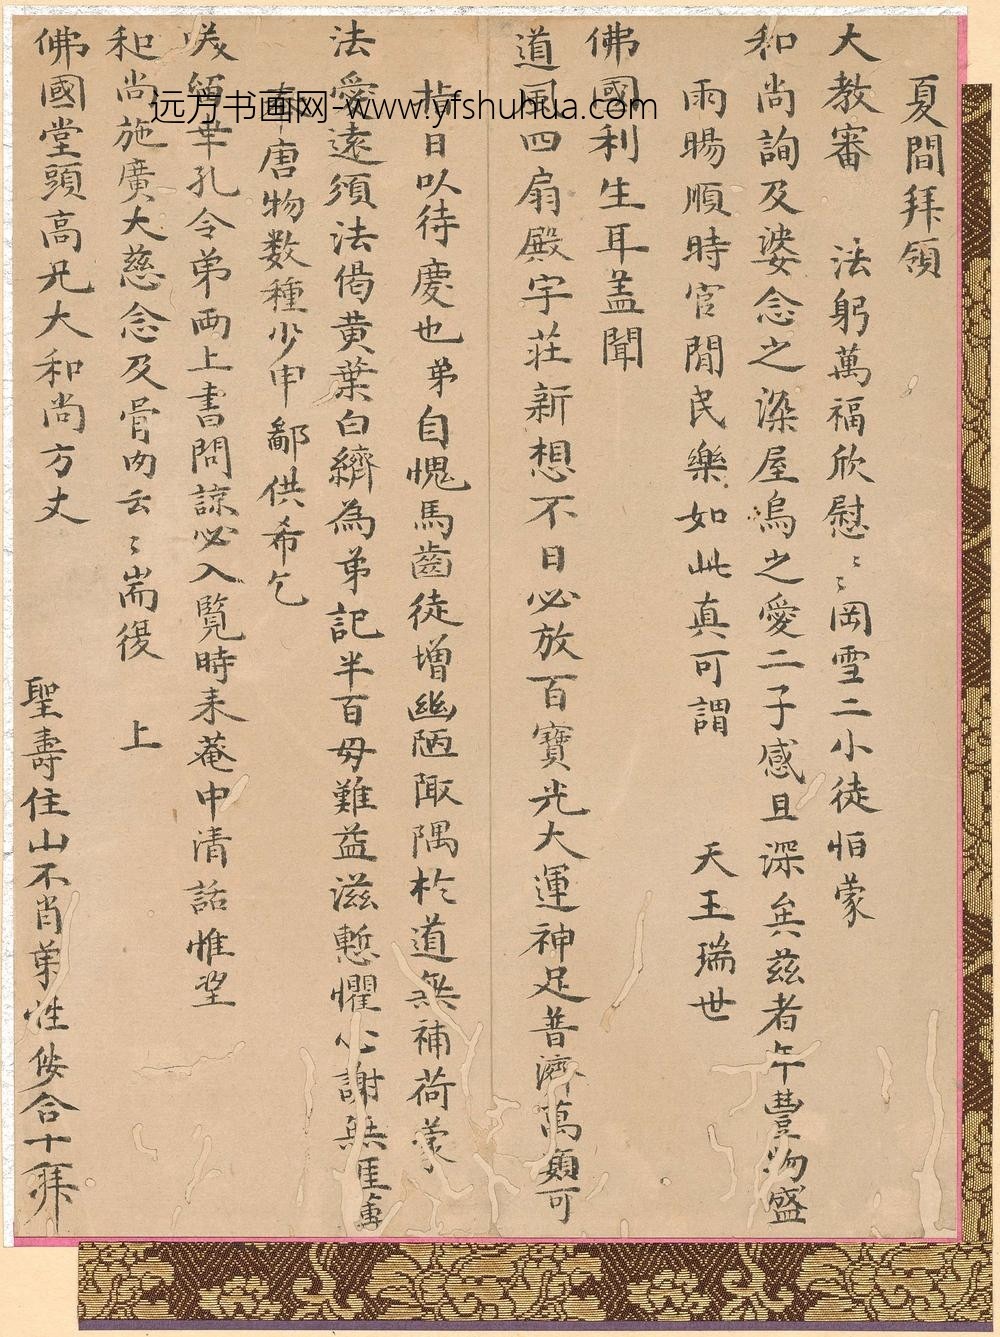 夏間拜領
大教審 法躬萬福欣慰〻〻岡雪二小徒怕蒙
和尚詢及婆念之深屋烏之愛二子感且深矣茲者午豐物盛
雨賜順時官閒民樂如此真可謂 天王瑞世
佛國利生耳蓋聞
道風四扇殿宇莊新想不日必放百寶光大運神足普濟萬類可
指日以待慶也弟自愧馬齒徒增幽陋陬隅於道無補荷蒙
法愛遠須法偈黄葉白繢為弟記半百毋難益滋慙懼心謝無匪
唐物数種少申鄙供希乞
筆孔令弟両上書問諒必入覧時来菴中清話惟望
和尚施廣大慈念及骨肉云〻耑復 上
佛國堂頭高兄大和尚方丈
聖壽住山不肖弟性侒合十拜
远方书画网-www.yfshuhua.com